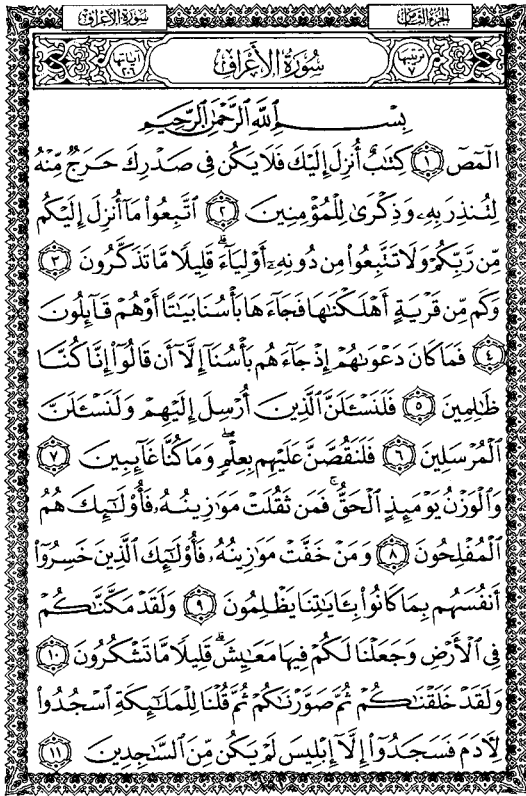 سُورَةُ الأَعْرَافِ الجزء الثامن
ترتيبها ٧ سُورَةُ الأَعْرَافِ آياتها ٢٠٦
بِسْمِ ٱللَّهِ ٱلرَّحْمَٰنِ ٱلرَّحِيمِ
الٓمٓصٓ ١ كِتَٰبٌ أُنزِلَ إِلَيْكَ فَلَا يَكُن فِى صَدْرِكَ حَرَجٌ مِّنْهُ
لِتُنذِرَ بِهِۦ وَذِكْرَىٰ لِلْمُؤْمِنِينَ ٢ ٱتَّبِعُوا۟ مَآ أُنزِلَ إِلَيْكُم
مِّن رَّبِّكُمْ وَلَا تَتَّبِعُوا۟ مِن دُونِهِۦٓ أَوْلِيَآءَ ۗ قَلِيلًا مَّا تَذَكَّرُونَ ٣
وَكَم مِّن قَرْيَةٍ أَهْلَكْنَٰهَا فَجَآءَهَا بَأْسُنَا بَيَٰتًا أَوْ هُمْ قَآئِلُونَ
٤ فَمَا كَانَ دَعْوَىٰهُمْ إِذْ جَآءَهُم بَأْسُنَآ إِلَّآ أَن قَالُوٓا۟ إِنَّا كُنَّا
ظَٰلِمِينَ ٥ فَلَنَسْـَٔلَنَّ ٱلَّذِينَ أُرْسِلَ إِلَيْهِمْ وَلَنَسْـَٔلَنَّ
ٱلْمُرْسَلِينَ ٦ فَلَنَقُصَّنَّ عَلَيْهِم بِعِلْمٍ ۖ وَمَا كُنَّا غَآئِبِينَ ٧
وَٱلْوَزْنُ يَوْمَئِذٍ ٱلْحَقُّ ۚ فَمَن ثَقُلَتْ مَوَٰزِينُهُۥ فَأُو۟لَٰٓئِكَ هُمُ
ٱلْمُفْلِحُونَ ٨ وَمَنْ خَفَّتْ مَوَٰزِينُهُۥ فَأُو۟لَٰٓئِكَ ٱلَّذِينَ خَسِرُوٓا۟
أَنفُسَهُم بِمَا كَانُوا۟ بِـَٔايَٰتِنَا يَظْلِمُونَ ٩ وَلَقَدْ مَكَّنَّٰكُمْ
فِى ٱلْأَرْضِ وَجَعَلْنَا لَكُمْ فِيهَا مَعَٰيِشَ ۗ قَلِيلًا مَّا تَشْكُرُونَ ١٠
وَلَقَدْ خَلَقْنَٰكُمْ ثُمَّ صَوَّرْنَٰكُمْ ثُمَّ قُلْنَا لِلْمَلَٰٓئِكَةِ ٱسْجُدُوا۟
لِءَادَمَ فَسَجَدُوٓا۟ إِلَّآ إِبْلِيسَ لَمْ يَكُن مِّنَ ٱلسَّٰجِدِينَ ١١